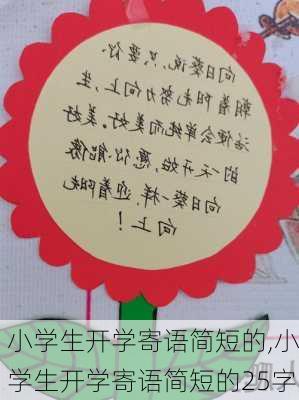 向日葵说,只要你
朝着阳光努力向上,生
活便会单纯而美好。美好
的一天开始,愿你能像
向日葵一样,迎着阳光
向上!
小学生开学寄语简短的,小
学生开学寄语简短的25字